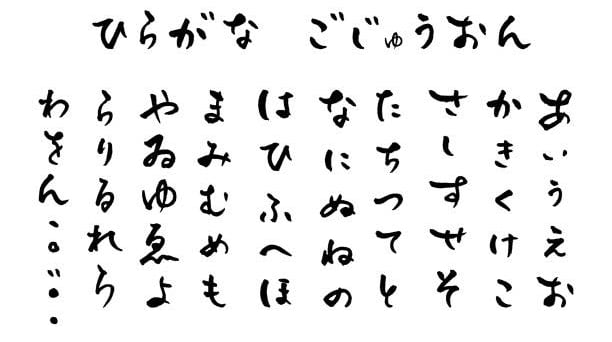 ひらがな　ごじゅうおん
あいうえお
かきくけこ
さしすせそ
たちつてと
なにぬねの
はひふへほ
まみむめも
やゐゆゑよ
らりるれら
わをん